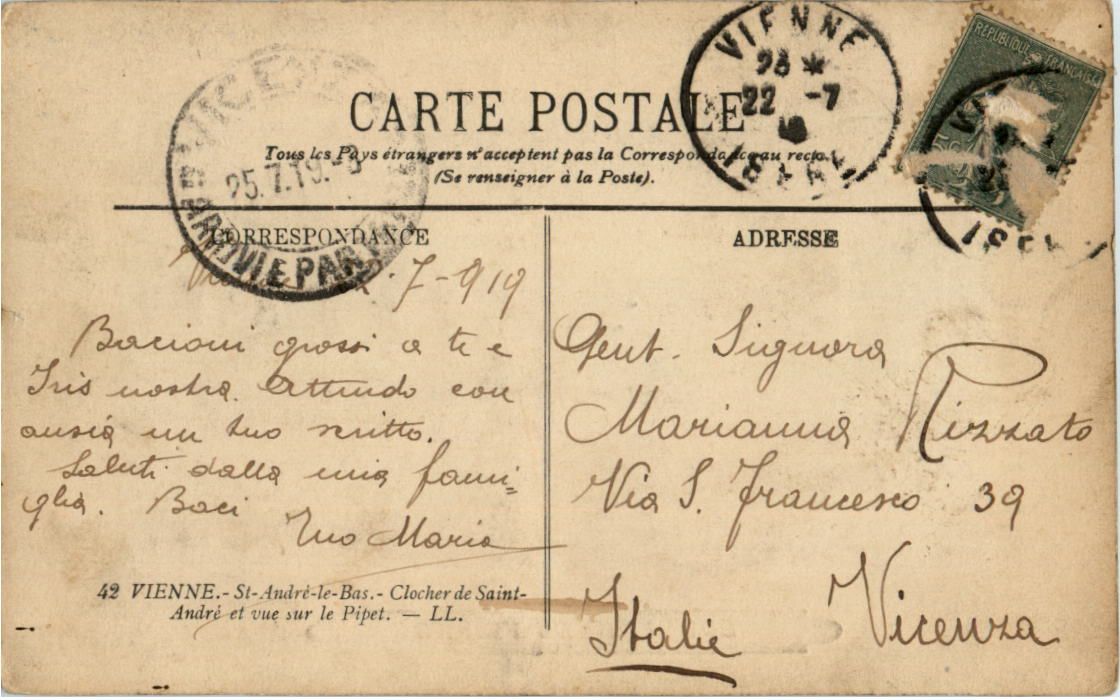 VIENNE
22 -7
ISERE
REPUBLIQUE FRANÇAISE
CARTE POSTALE
Tous les Pays étrangers n'acceptent pas la Correspondance au recto.
(Se renseigner à la Poste).
25.7.19.-8
ARRIVI E PAR
CORRESPONDANCE
ADRESSE
7-919
Bacioni grossi a te e
Iris nostra. Attendo con
ansia un tuo scritto.
Saluti dalla mia fami=
glia. Baci
Tuo Mario
Gent. Signora
Marianna Rizzato
Via S. Francesco 39
Vicenza
Italie
42 VIENNE.- St-André-le-Bas.- Clocher de Saint-
André et vue sur le Pipet. — LL.